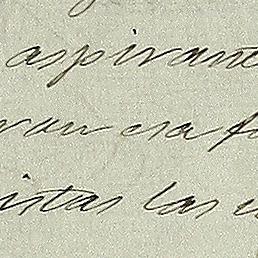 aspirante
van esa f
istas las